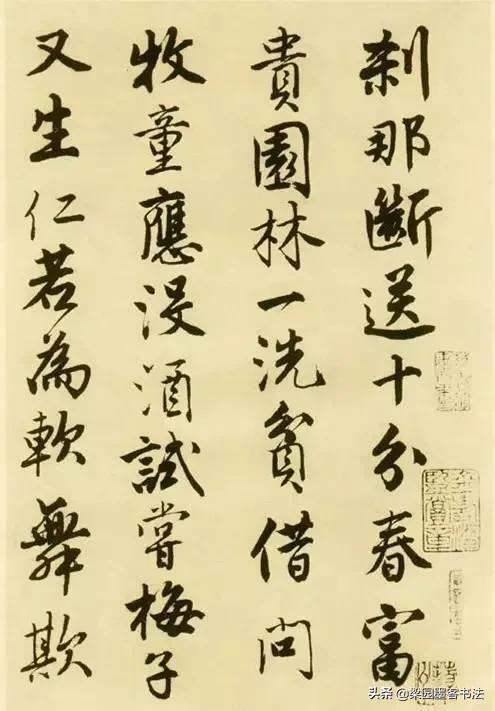 刹那斷送十分春富
貴園林一洗貧借问
牧童應没酒試嘗梅子
又生仁若為軟舞欺
头条 @梁园墨客书法